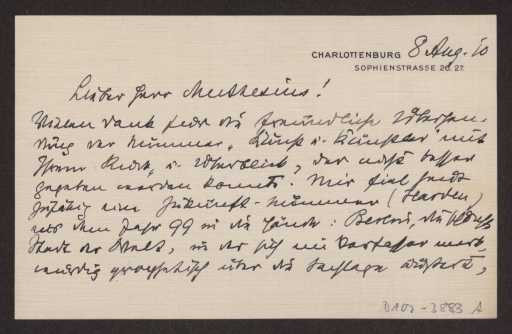 CHARLOTTENBURG 8 Aug. 10
SOPHIENSTRASSE 26.27.
Lieber Herr Muthesius!
Vielen Dank für die freundliche Übersen-
dung der Nummer „Kunst u. Künstler“ mit
Ihrem u. Überblick, der nicht besser
gegeben werden konnte. Mir fiel heute
zufällig eine Zukunft-Nummer (Harden)
aus dem Jahr 99 in die Hände: Berlin, die
Stadt der Welt, in der sich ein Verfasser merk-
würdig prophetisch über die Sachlage äussert,
D102-3883 A